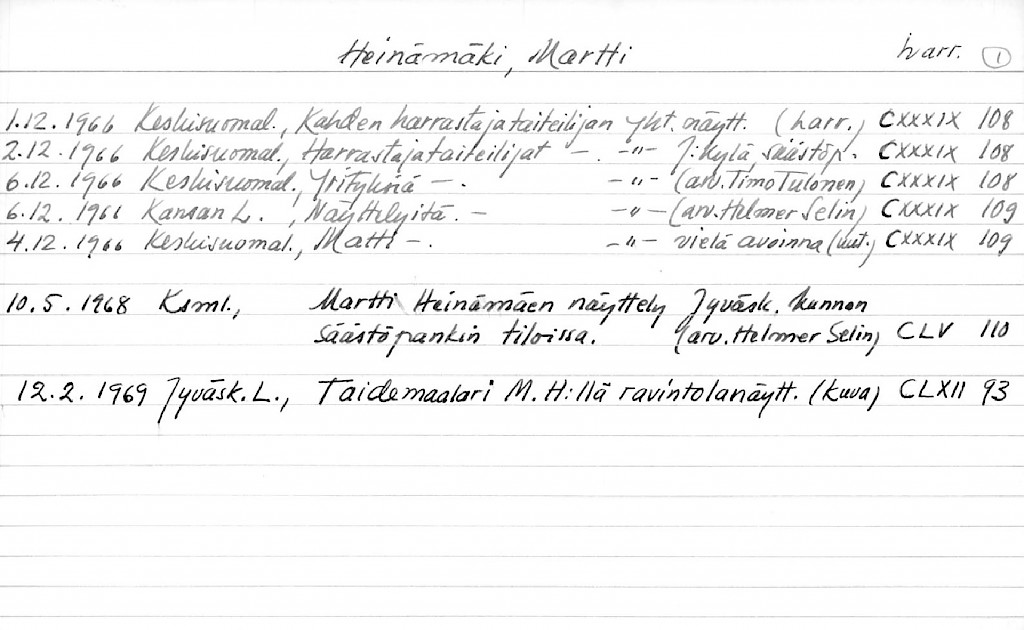 Heinämäki, Martti harr. 1
1.12.1966 Keskisuomal., Kahden harrastajataiteilijan yht. näytt. (harr.) CXXXIX 108
2.12.1966 Keskisuomal., Harrastajataiteilijat – . –"– J:kylä, säästöp. CXXXIX 108
6.12.1966 Keskisuomal., Yrityksiä – . –"– (arv. Timo Tulonen) CXXXIX 108
6.12.1966 Kansan L., Näyttelyitä. – –"– (arv. Helmer Selin) CXXXIX 109
4.12.1966 Keskisuomal., Matti – . –"– vielä avoinna (uut.) CXXXIX 109
10.5.1968 Ksml., Martti Heinämäen näyttely Jyväsk. kunnan
säästöpankin tiloissa. (arv. Helmer Selin) CLV 110
12.2.1969 Jyväsk. L., Taidemaalari M. H:llä ravintolanäytt. (kuva) CLXII 93